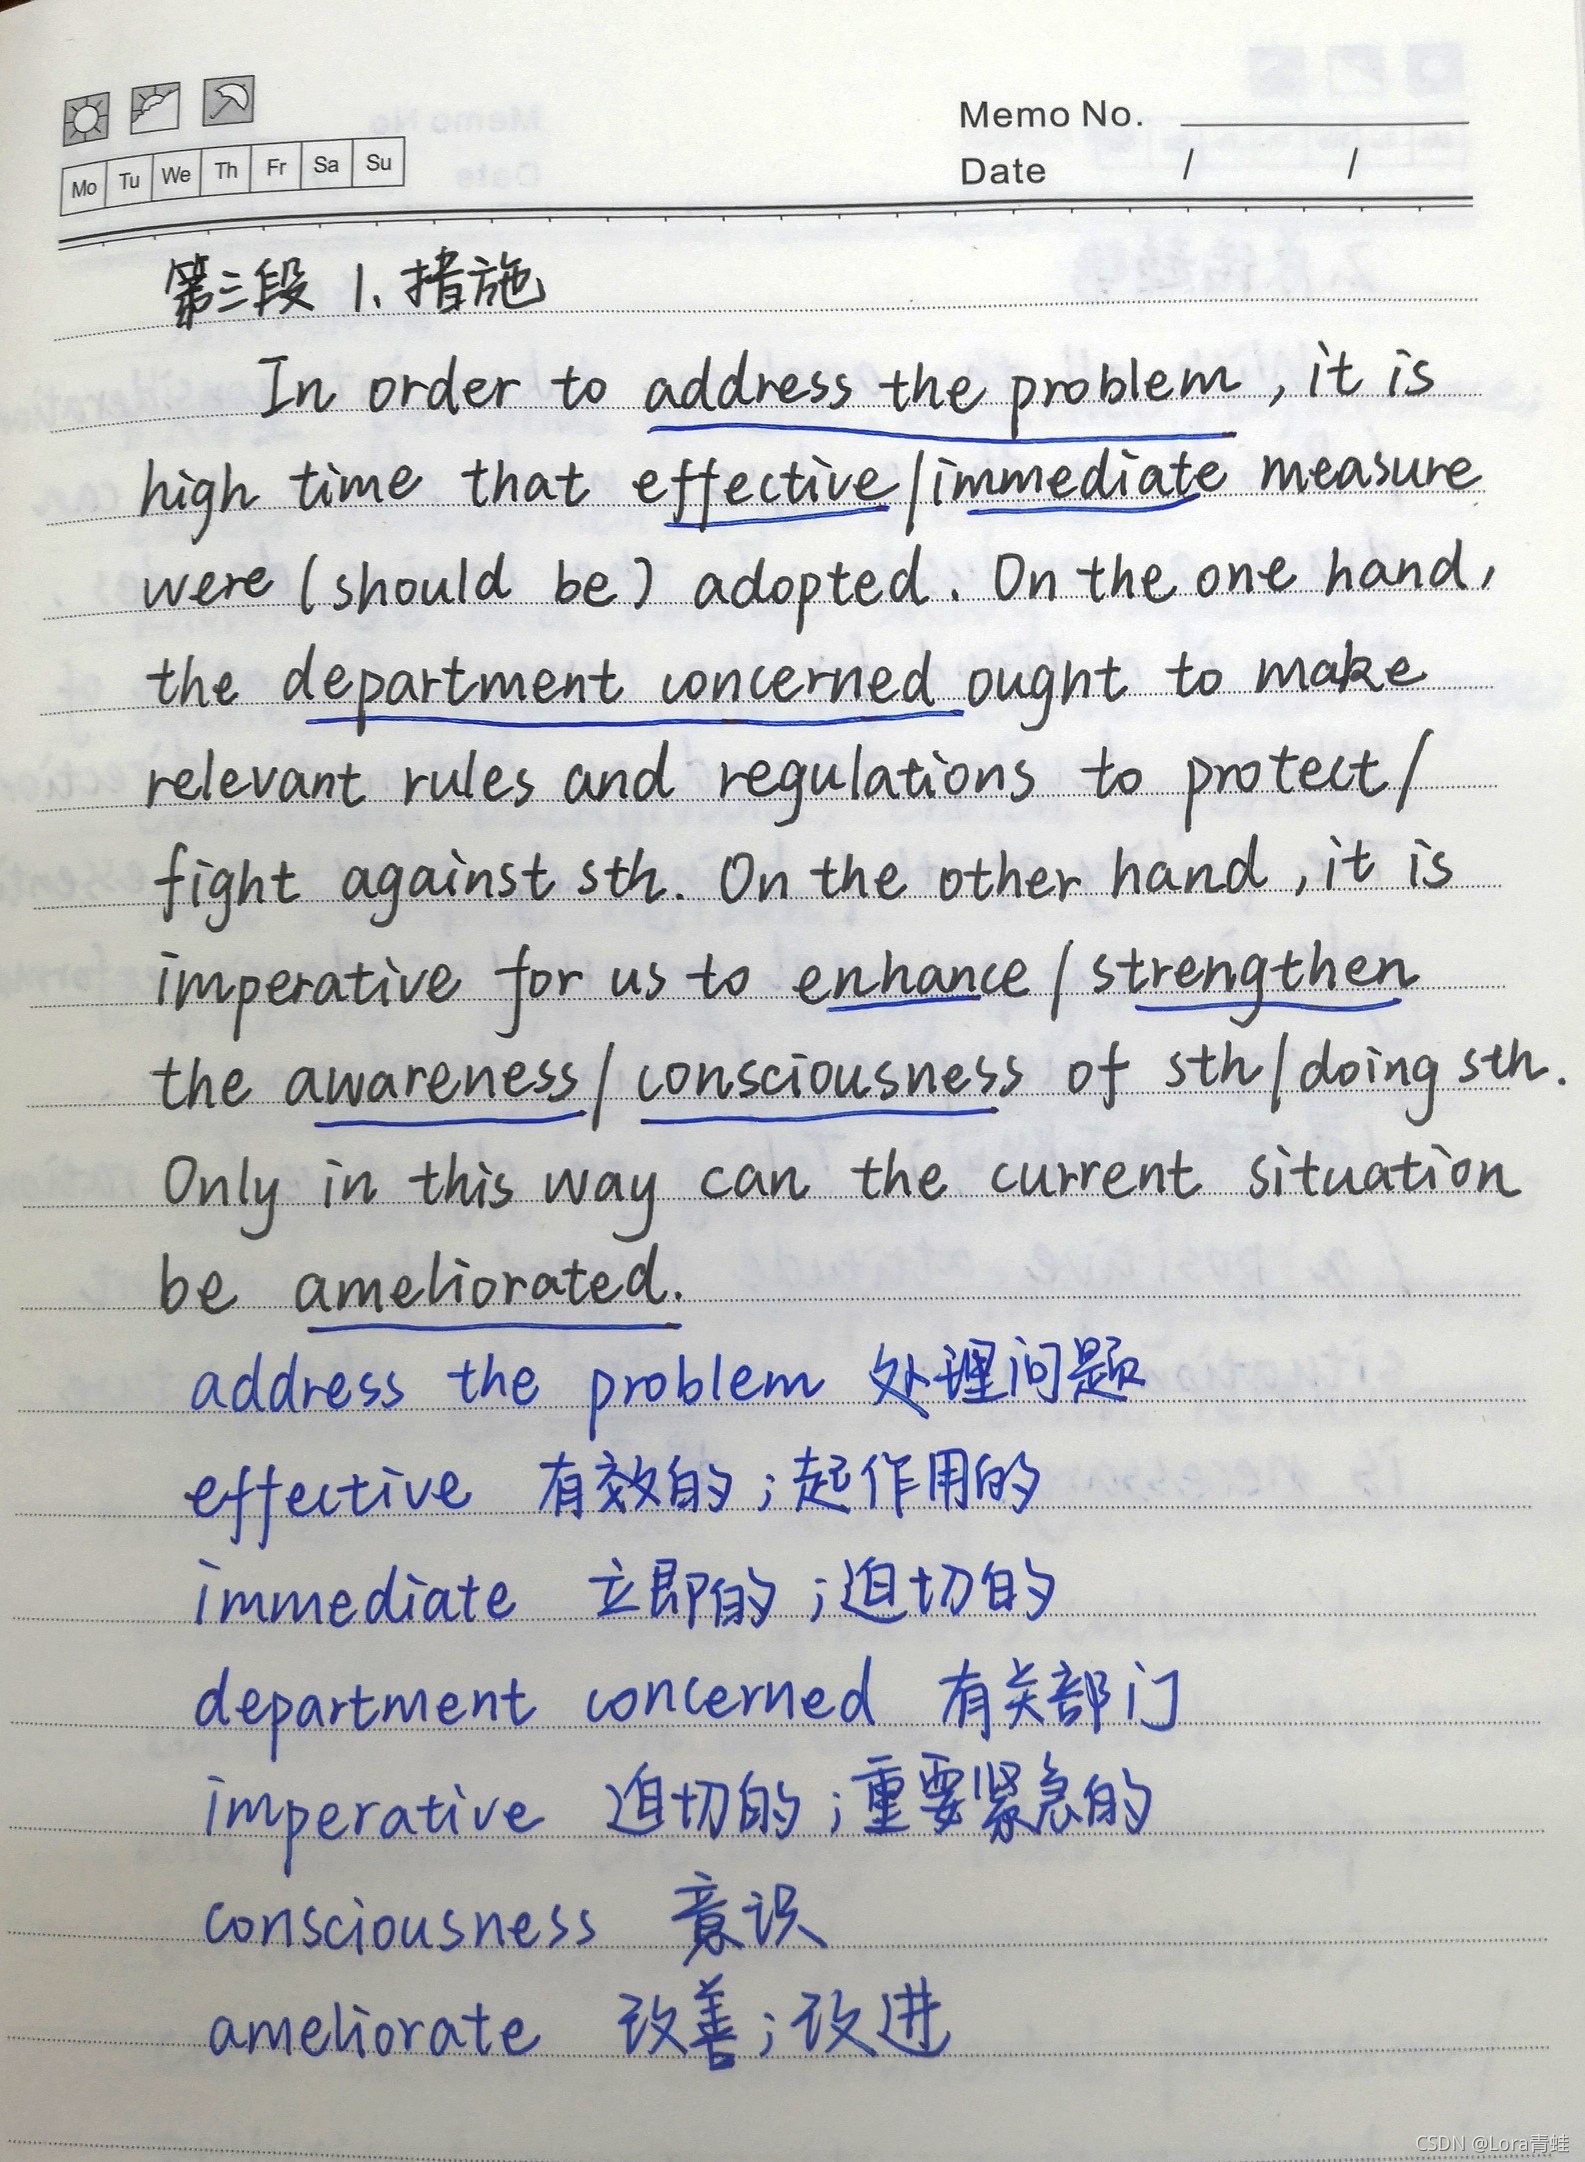 Memo No.
Mo Tu We Th Fr Sa Su
Date / /
第三段 1、措施
In order to address the problem, it is
high time that effective/immediate measure
were (should be) adopted. On the one hand,
the department concerned ought to make
relevant rules and regulations to protect/
fight against sth. On the other hand, it is
imperative for us to enhance/strengthen
the awareness/consciousness of sth/doing sth.
Only in this way can the current situation
be ameliorated.
address the problem 处理问题
effective 有效的;起作用的
immediate 立即的;迫切的
department concerned 有关部门
imperative 迫切的;重要紧急的
consciousness 意识
ameliorate 改善;改进
CSDN @Lora青蛙